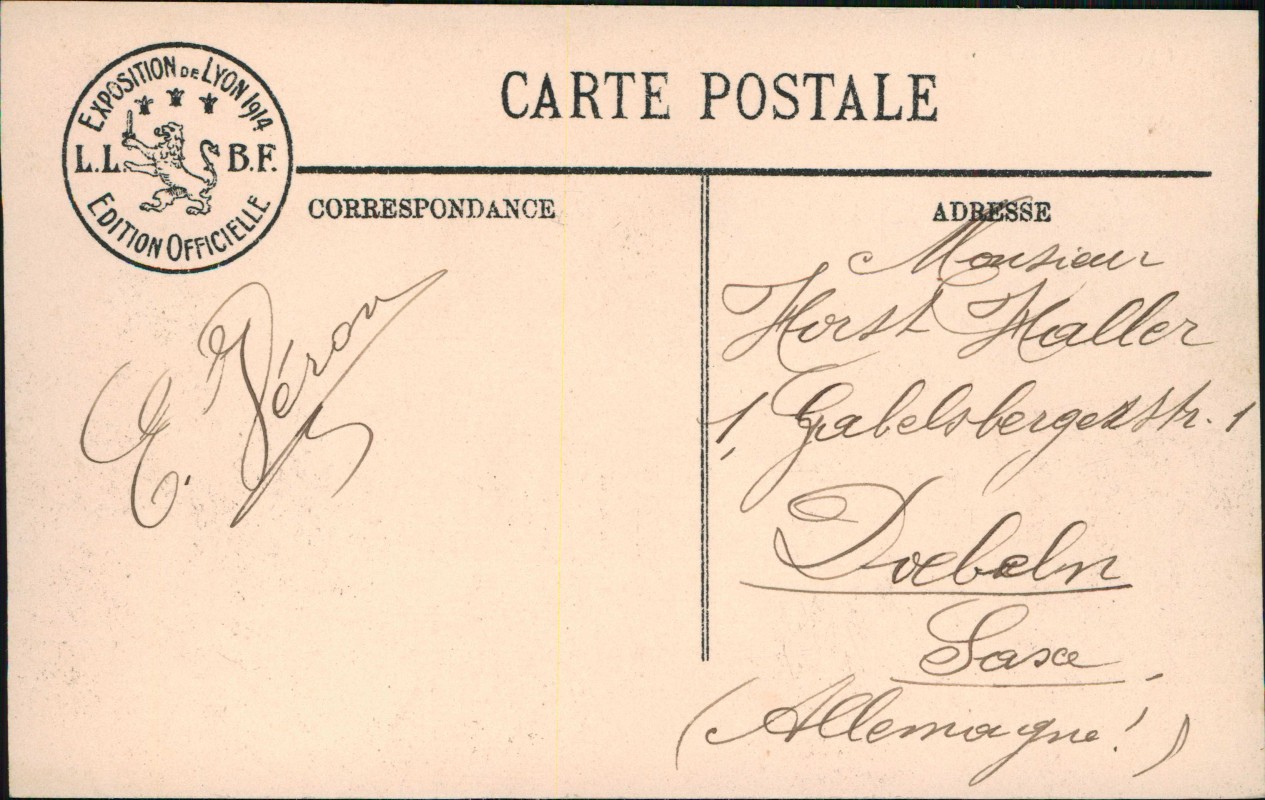 EXPOSITION DE LYON 1914
L.L. B.F.
EDITION OFFICIELLE
CARTE POSTALE
CORRESPONDANCE
ADRESSE
E. Véron
Monsieur
Horst Haller
1, Gabelsbergerstr. 1
Doebeln
Saxe,
(Allemagne!)